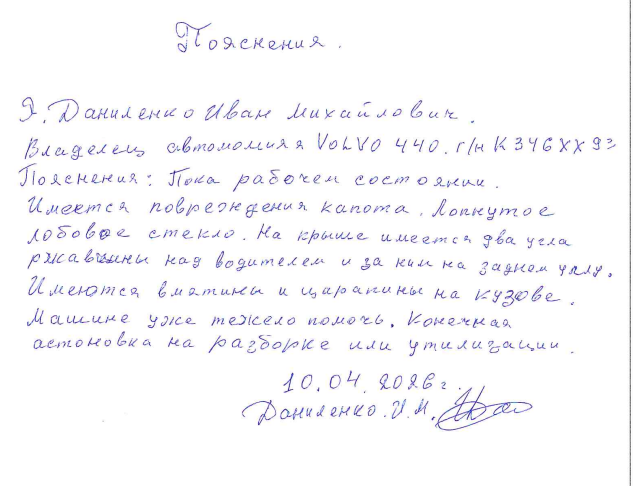 Пояснения.
Я. Даниленко Иван Михайлович.
Владелец автомомия VOLVO 440. г/н К346ХХ93
Пояснения: Пока рабочем состоянии.
Имеется повреждения капота. Лопнутое
лобовое стекло. На крыше имеется два угла
ржавчины над водителем и за ним на заднем углу.
Имеются вмятины и царапины на кузове.
Машине уже тежело помочь. Конечная
астоновка на разборке или утилизации.
10.04.2026г.
Даниленко.И.М.